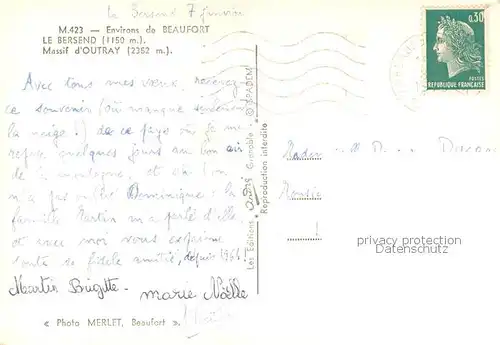 le Bersend 7 janvier
M.423 — Environs de BEAUFORT
LE BERSEND (1150 m.).
Massif d'OUTRAY (2352 m.).
0,30
POSTES
REPUBLIQUE FRANÇAISE
Avec tous mes vœux, recevez
ce souvenir (où manque seulement
la neige!) de ce pays où je me
refais quelques jours au bon air
de la montagne, et où l'on
n'a pas oublié Dominique: la
famille Martin m'a parlé d'elle
et avec moi vous exprime
toute sa fidèle amitié, depuis 1964.
Martin Brigitte - Marie Noëlle
« Photo MERLET, Beaufort ».
Les Editions Grenoble - © SPADEM
Reproduction interdite
privacy protection
Datenschutz